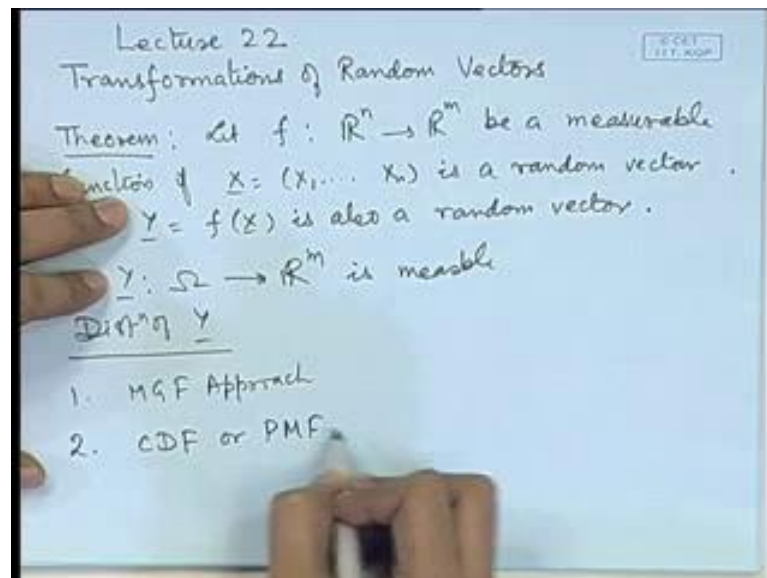 Lecture 22
© CET
I.I.T. KGP
Transformations of Random Vectors
Theorem: Let f: ℝⁿ → ℝᵐ be a measurable
X = (X₁, .... Xₙ) is a random vector.
Y = f(X) is also a random vector.
Y: Ω → ℝᵐ is measble
Distⁿ of Y
1. MGF Approach
2. CDF or PMF